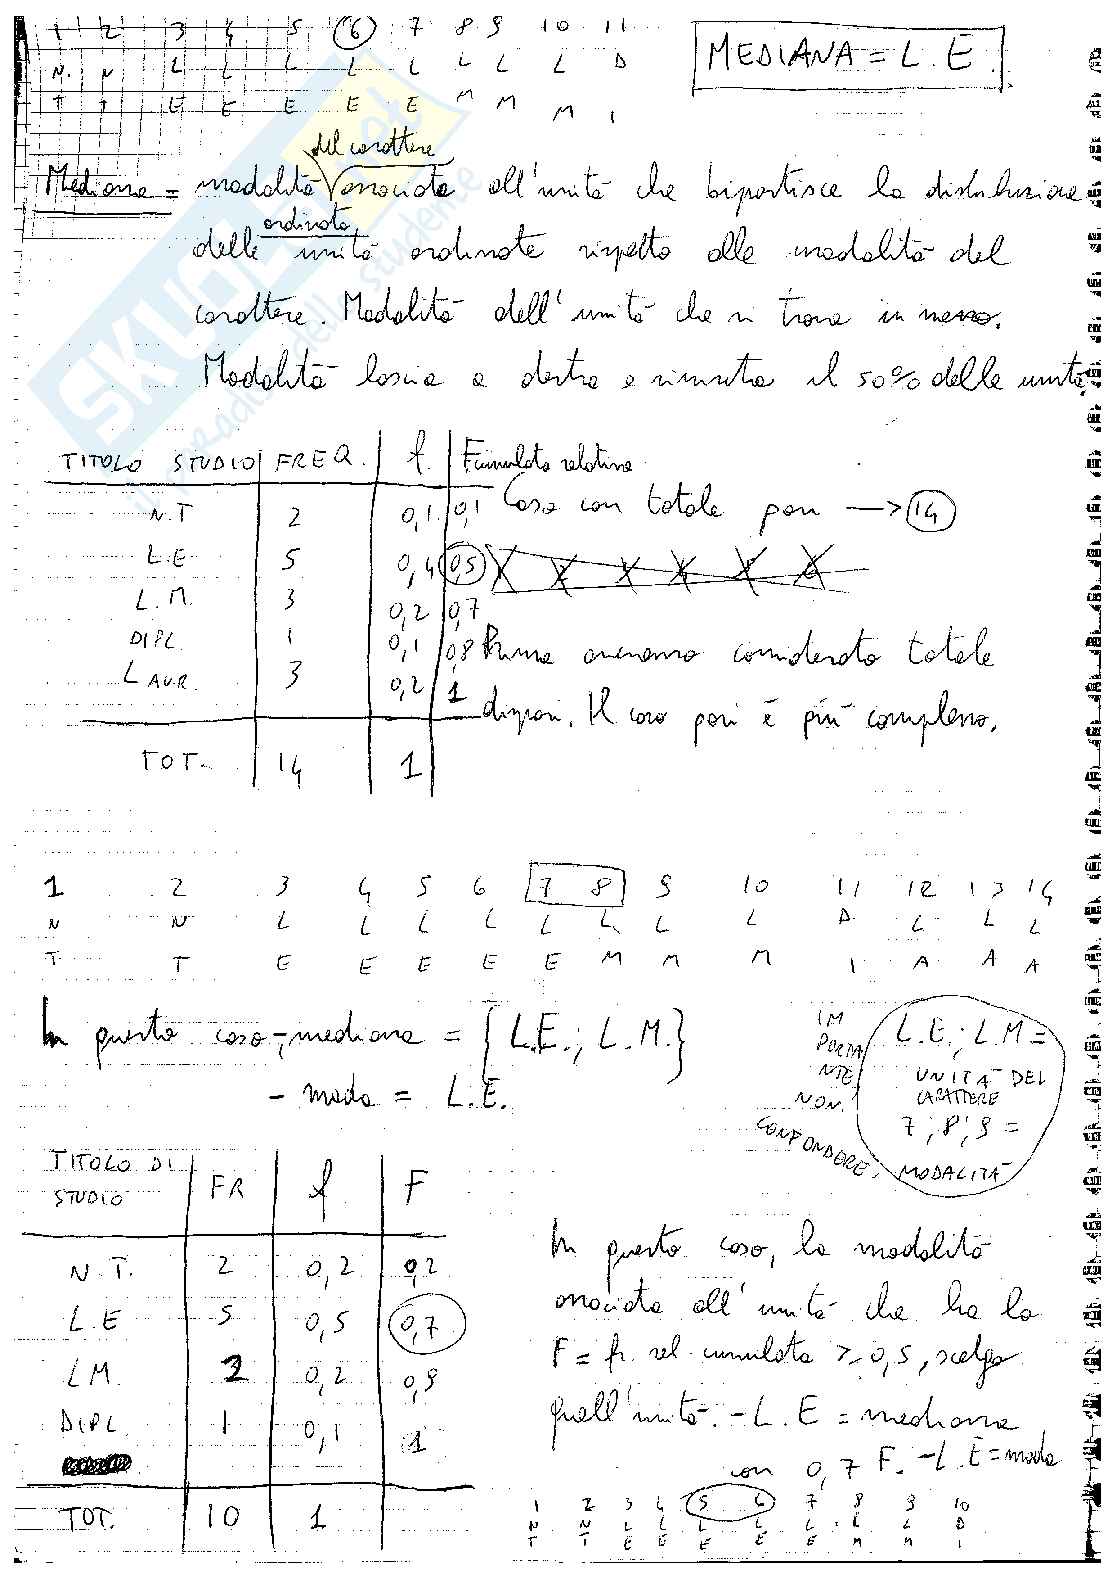 1 2 3 4 5 6 7 8 9 10 11
N N L L L L L L L L D
T T E E E E E M M M I
MEDIANA = L.E.
del carattere
Mediana = modalità associata all'unità che bipartisce la distribuzione
ordinata
delle unità ordinate rispetto alle modalità del
carattere. Modalità dell'unità che si trova in mezzo.
Modalità lascia a destra e sinistra il 50% delle unità.
SKUOLA.net
il paradiso dello studente
TITOLO STUDIO FREQ. f F cumulata relativa
N.T 2 0,1 0,1 Caso con totale pari → 14
L.E 5 0,4 0,5
L.M. 3 0,2 0,7
DIPL. 1 0,1 0,8 Prima avevamo considerato totale
LAUR. 3 0,2 1 dispari. Il caso pari è più complesso.
TOT. 14 1
1 2 3 4 5 6 7 8 9 10 11 12 13 14
N N L L L L L L L L D L L L
T T E E E E E M M M I A A A
In questo caso - mediana = {L.E.; L.M.}
- moda = L.E.
IMPORTANTE NON CONFONDERE
L.E.; L.M =
UNITÀ DEL
CARATTERE
7; 8; 9 =
MODALITÀ
TITOLO DI
STUDIO FR f F
N.T. 2 0,2 0,2
L.E 5 0,5 0,7
LM. 2 0,2 0,9
DIPL 1 0,1 1
TOT. 10 1
In questo caso, la modalità
associata all'unità che ha la
F = fr. rel. cumulata ≥ 0,5, scelgo
quell'unità. - L.E = mediana
con 0,7 F. - L.E = moda
1 2 3 4 5 6 7 8 9 10
N N L L L L L L L D
T T E E E E E M M I